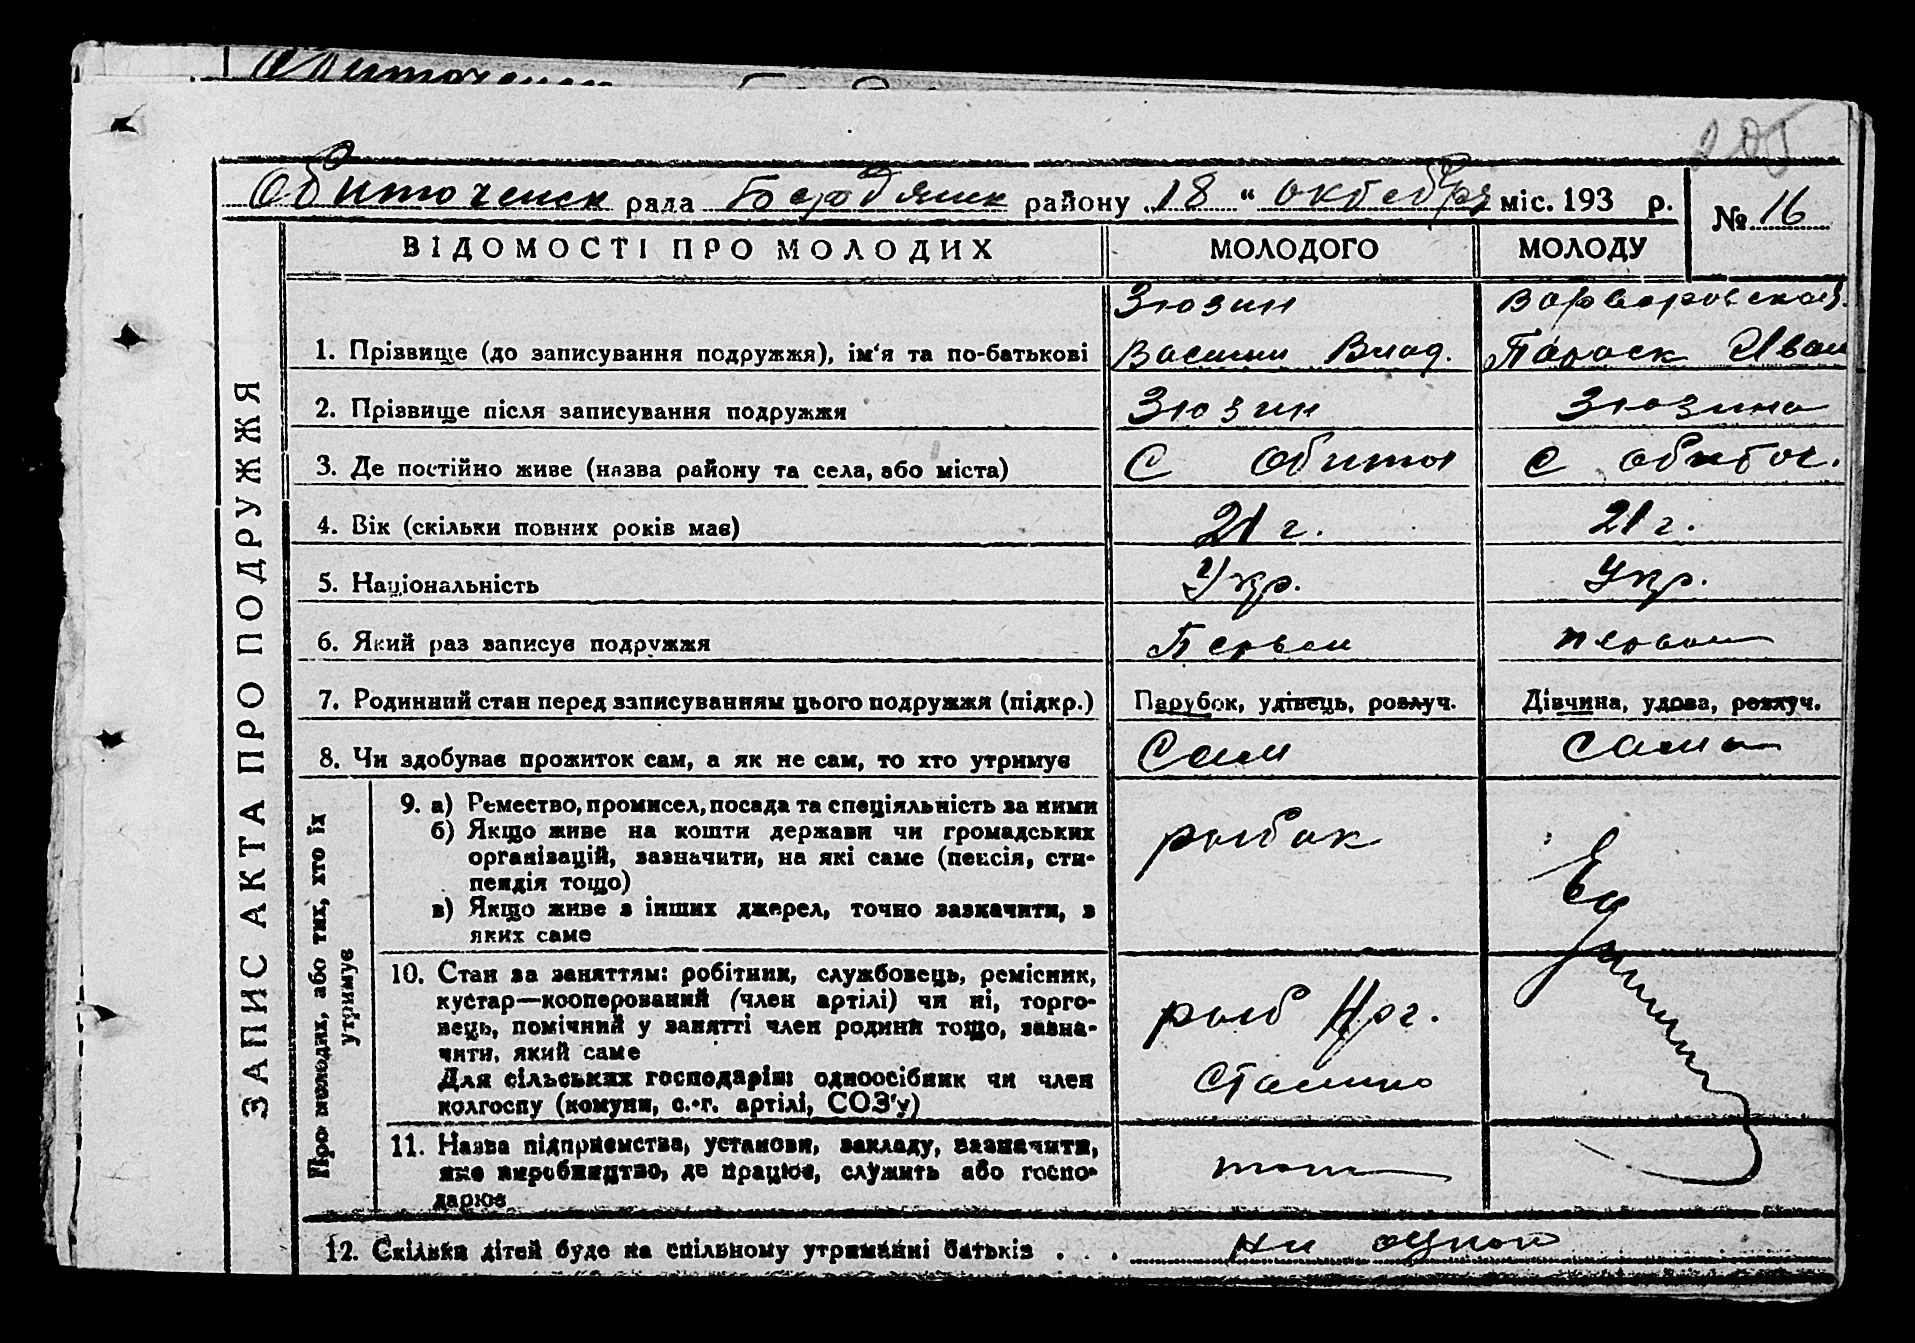 205
Обиточенск рада Бердянск району „18" октября міс. 193 р. № 16
ЗАПИС АКТА ПРО ПОДРУЖЖЯ
ВІДОМОСТІ ПРО МОЛОДИХ МОЛОДОГО МОЛОДУ
Зюзин
1. Прізвище (до записування подружжя), ім'я та по-батькові Василий Влад. Параск Иван
2. Прізвище після записування подружжя Зюзин Зюзина
3. Де постійно живе (назва району та села, або міста) С Обиточ С Обиточ.
4. Вік (скільки повних років має) 21 г. 21 г.
5. Національність Укр. Укр.
6. Який раз записує подружжя Первой первой
7. Родинний стан перед записуванням цього подружжя (підкр.) Парубок, удівець, розлуч. Дівчина, удова, розлуч.
8. Чи здобуває прожиток сам, а як не сам, то хто утримує Сам сама
Про молодих, або тих, хто їх утримує
9. а) Ремество, промисел, посада та спеціяльність за ними рыбак
б) Якщо живе на кошти держави чи громадських
організацій, зазначити, на які саме (пенсія, сти-
пендія тощо)
в) Якщо живе з інших джерел, точно зазначити, з
яких саме
10. Стан за заняттям: робітник, службовець, ремісник,
кустар—кооперований (член артілі) чи ні, торго-
вець, помічний у занятті член родини тощо, зазна- рыб
чити, який саме
Для сільських господарів: одноосібник чи член Сталина
колгоспу (комуни, с.-г. артілі, СОЗ'у)
11. Назва підприємства, установи, закладу, зазначити,
яке виробництво, де працює, служить або госпо-
дарює
12. Скільки дітей буде на спільному утриманні батьків . . . ни одной